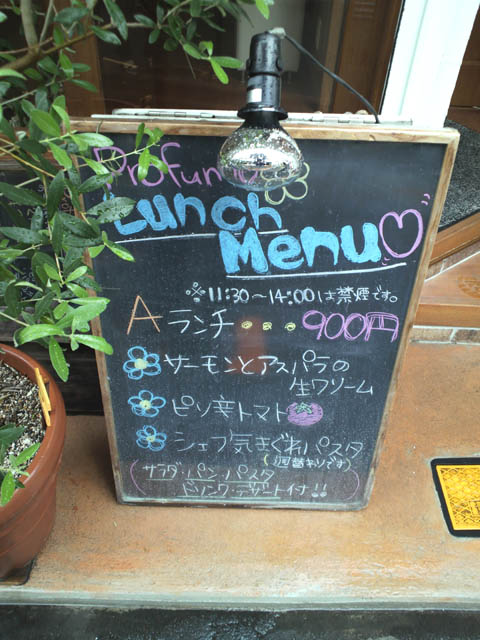 Profumo
Lunch
Menu
※11:30～14:00は禁煙です。
Aランチ・・・900円
サーモンとアスパラの
生クリーム
ピリ辛トマト
シェフ気まぐれパスタ
(週替わりです)
(サラダ・パン・パスタ
ドリンク・デザート付!!)